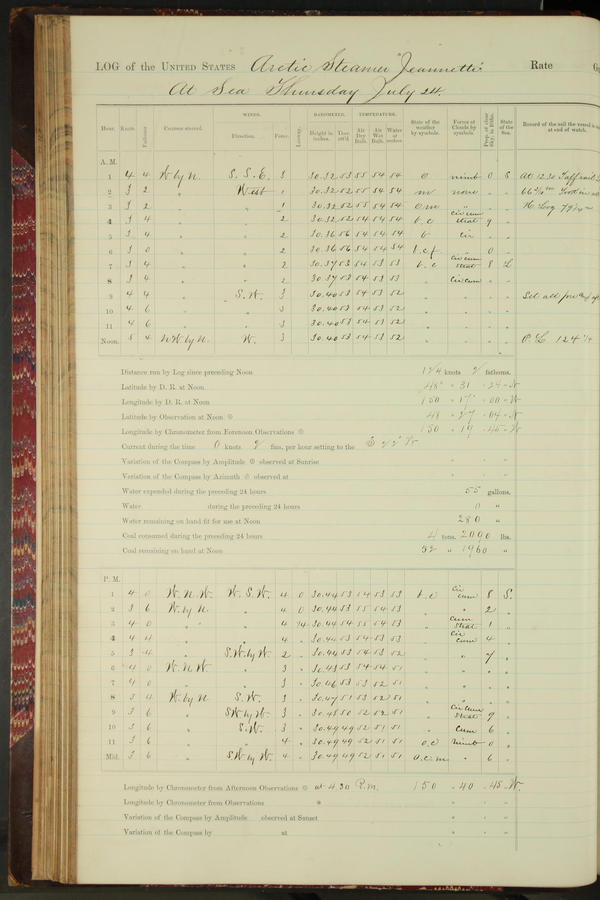 LOG of the UNITED STATES Arctic Steamer "Jeannette" Rate
At Sea Thursday July 24.
Hour. Knots. Fathoms. Courses steered. WINDS. Direction. Force. Leeway. BAROMETER. Height in inches. Ther. att'd. TEMPERATURE. Air Dry Bulb. Air Wet Bulb. Water at surface. State of the weather by symbols. Forms of Clouds by symbols. Prop. of clear sky, in 10ths. State of the Sea. Record of the sail the vessel is
at end of watch.
A. M.
1 4 4 W by N. S. S. E. 3 30.32 53 55 54 54 o nimb 0 S. At 12.30
2 3 2 " West 1 30.32 52 55 54 54 m none " "
3 3 2 " " 1 30.32 52 55 54 54 o m " " "
4 3 4 " " 2 30.32 52 54 54 54 b. c cir cum strat 9 "
5 3 4 " " 2 30.36 56 54 54 54 b cir " "
6 3 0 " " 2 30.36 56 54 54 54 b. c. f " 0 "
7 3 4 " " 2 30.37 53 54 53 53 b. c cir cum strat 8 L
8 3 4 " " 2 30.37 53 54 53 53 " cir cum " "
9 4 4 " S. W. 3 30.40 53 54 53 52 " " " "
10 4 6 " " 3 30.40 53 54 53 52 " " " "
11 4 6 " " 3 30.40 53 54 53 52 " " " "
Noon. 5 4 N W by N. W. 3 30.40 53 54 53 52 " " " "
Distance run by Log since preceding Noon 124 knots 2 fathoms.
Latitude by D. R. at Noon 48° 31 24 N
Longitude by D. R. at Noon 150 17 00 W
Latitude by Observation at Noon 48 27 04 N
Longitude by Chronometer from Forenoon Observations 150 19 45 W
Current during the time 0 knots 2 fms. per hour setting to the S 22° W
Variation of the Compass by Amplitude observed at Sunrise
Variation of the Compass by Azimuth observed at
Water expended during the preceding 24 hours 55 gallons.
Water during the preceding 24 hours 0 "
Water remaining on hand fit for use at Noon 280 "
Coal consumed during the preceding 24 hours 4 tons. 2090 lbs.
Coal remaining on hand at Noon 52 " 1960 "
P. M.
1 4 0 W. N. W. W. S. W. 4 0 30.44 53 54 53 53 b. c cir cum 8 S.
2 3 6 W by N. " 4 0 30.44 53 55 54 53 " " 2 "
3 4 0 " " 4 1/4 30.44 54 55 54 53 " cum strat 1 "
4 4 4 " " 4 " 30.44 53 54 53 53 " cir cum 4 "
5 3 4 " S. W. by W. 2 " 30.44 53 54 53 52 " " 7 "
6 4 0 W. N. W " 3 " 30.43 53 54 54 51 " " " "
7 4 0 " " 3 " 30.46 53 53 52 51 " " " "
8 3 4 W by N. S. W. 3 " 30.47 51 53 52 51 " " " "
9 3 6 " S W by W. 3 " 30.48 50 52 52 51 " cir cum strat 9 "
10 3 6 " S. W. 3 " 30.49 49 52 51 51 " cum 6 "
11 3 6 " " 4 " 30.49 49 52 51 51 o. c nimb 0 "
Mid. 3 6 " S W by W. 4 " 30.49 49 52 51 51 o. c. m " 6 "
Longitude by Chronometer from Afternoon Observations at 4.30 P.m. 150 40 45 W.
Longitude by Chronometer from Observations
Variation of the Compass by Amplitude observed at Sunset
Variation of the Compass by at